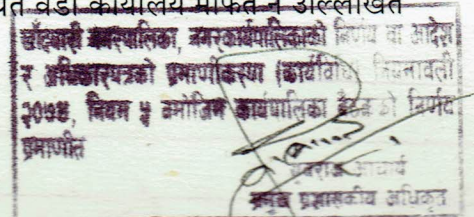 वडा कार्यालय मार्फत नै उल्लिखित
खाँदबारी नगरपालिका, नगरकार्यपालिकाको निर्णय वा आदेश
र अधिकारपत्रको प्रमाणीकरण (कार्यविधि) नियमावली
२०७४, नियम ५ बमोजिम कार्यपालिका बैठक को निर्णय
प्रमाणीत
आचार्य
प्रमुख प्रशासकीय अधिकृत